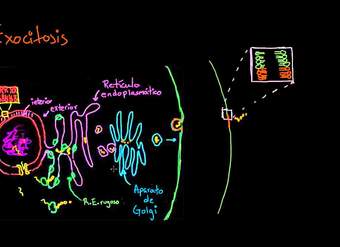 Exocitosis
Retículo
endoplasmático
interior
exterior
R.E. rugoso
Aparato
de
Golgi